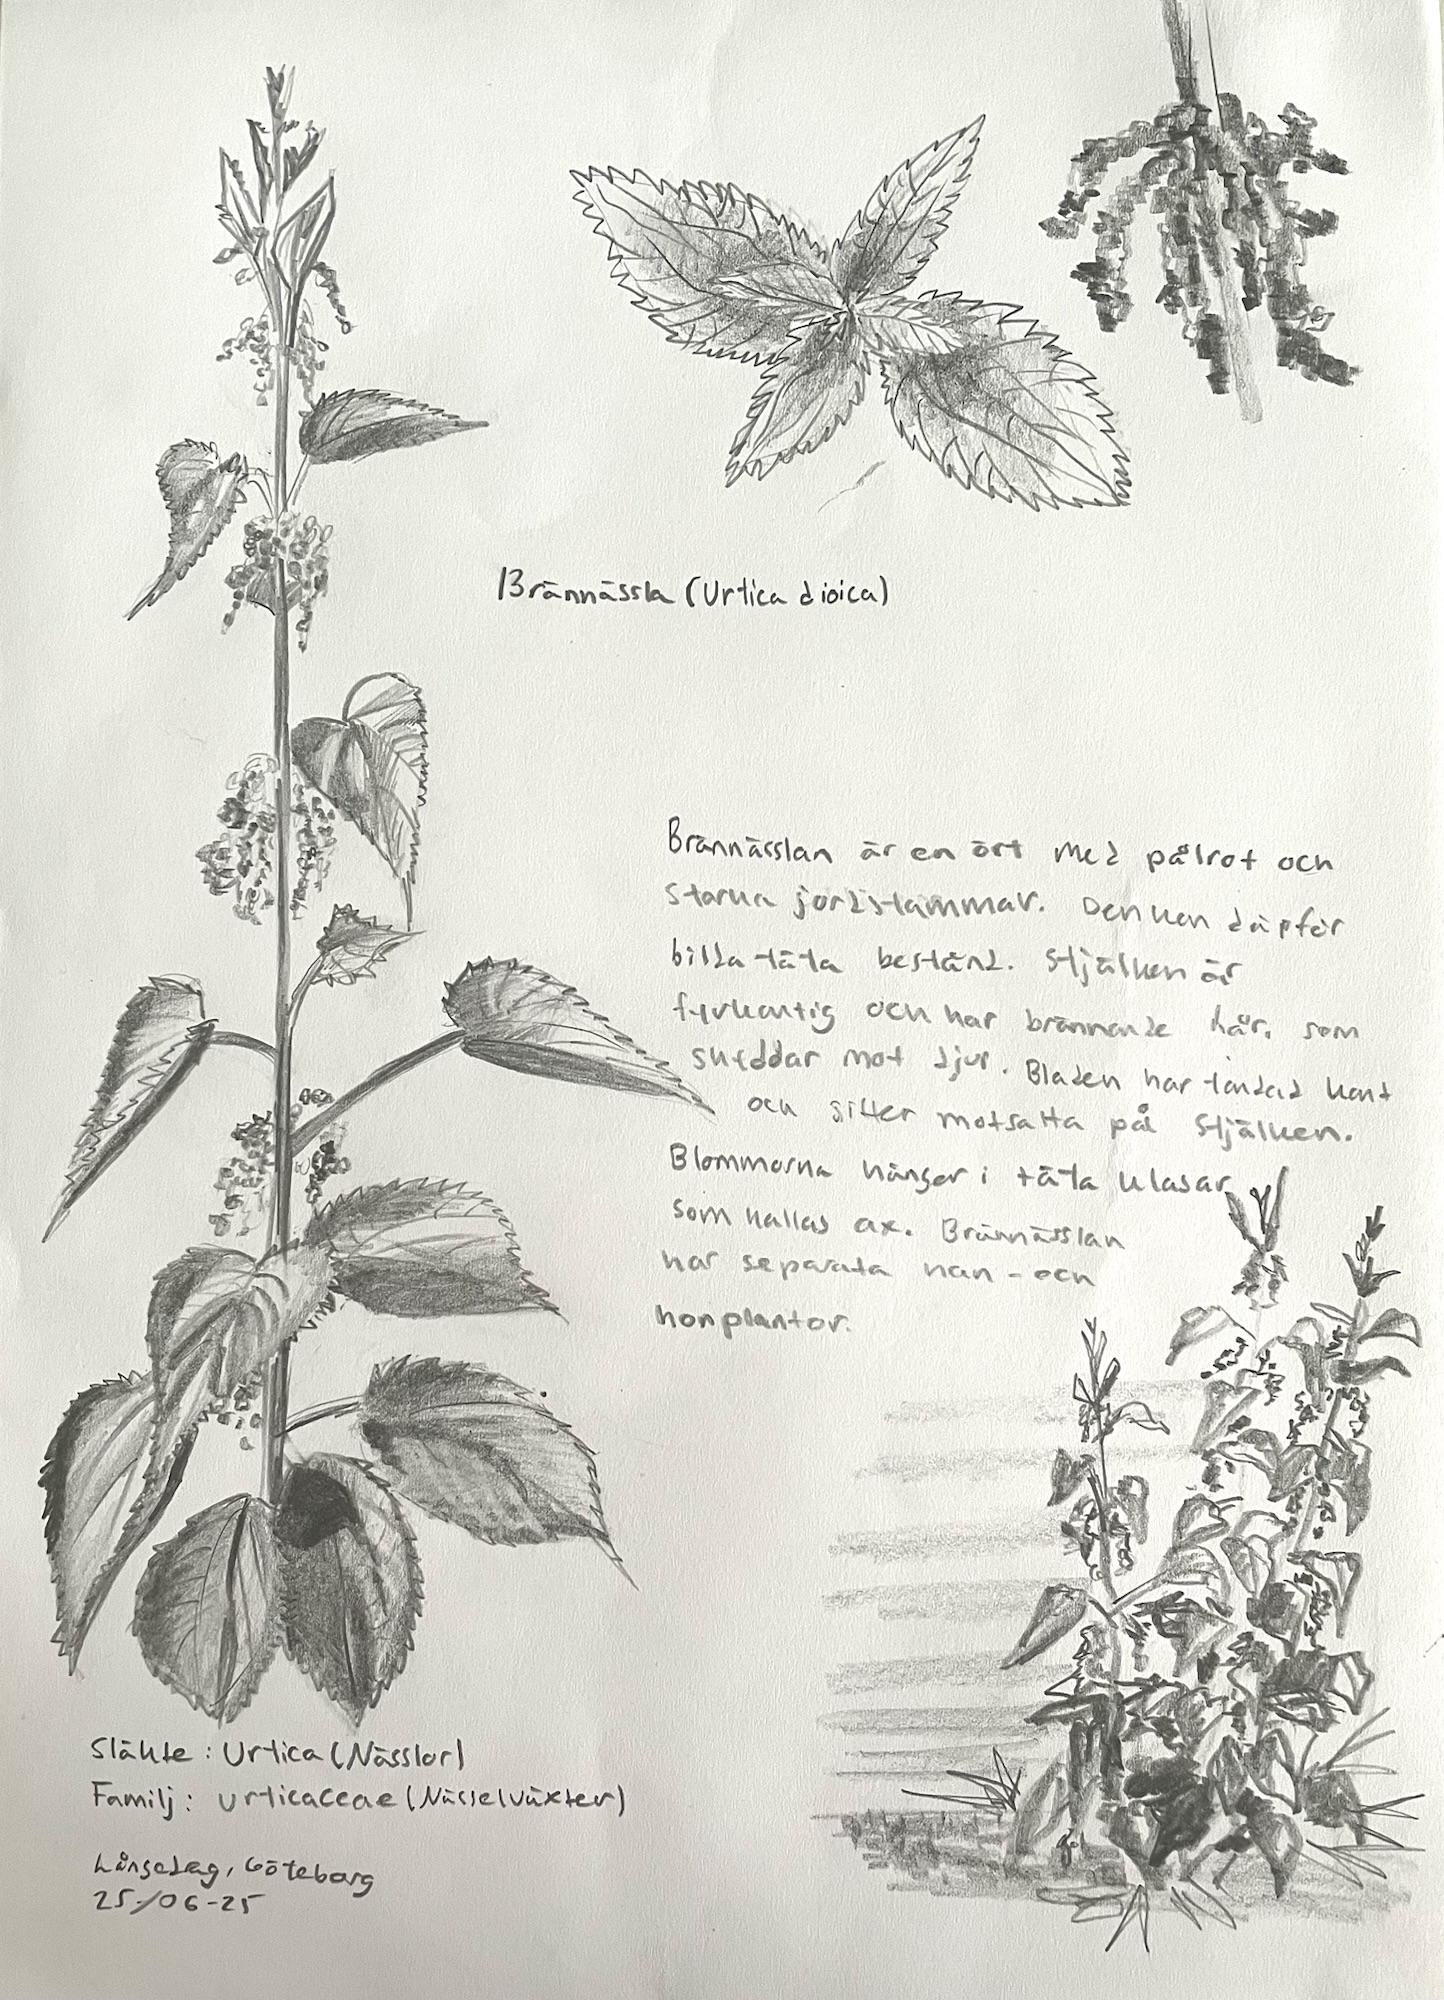 Brännässla (Urtica dioica)
Brännässlan är en ört med pålrot och
starka jordstammar. Den kan därför
bilda täta bestånd. Stjälken är
fyrkantig och har brännande hår, som
skyddar mot djur. Bladen har tandad kant
och sitter motsatta på stjälken.
Blommorna hänger i täta klasar
som kallas ax. Brännässlan
har separata han- och
honplantor.
Släkte: Urtica (Nässlor)
Familj: Urticaceae (Nässelväxter)
Långedrag, Göteborg
25/06-25